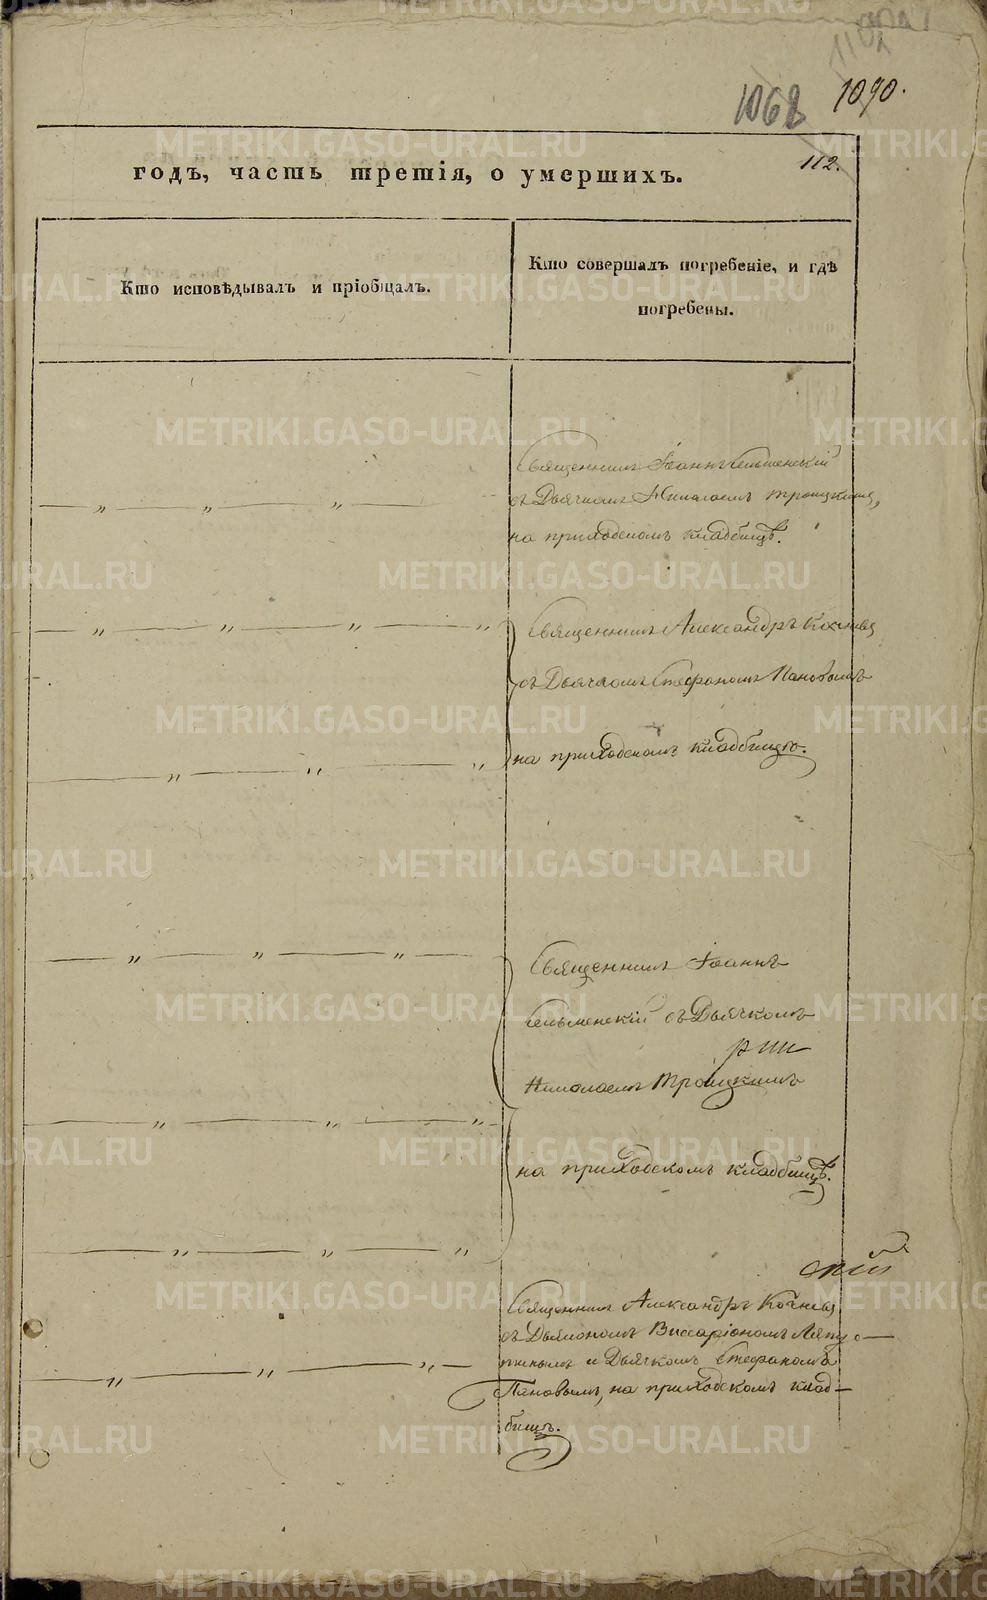 1068 1090.
112.
годъ, часть третія, о умершихъ.
Кто исповѣдывалъ и пріобщалъ.
Кто совершалъ погребеніе, и гдѣ
погребены.
Священникъ Іоаннъ Сельменскій
съ Дьячкомъ Николаемъ Троицкимъ,
на приходскомъ кладбищѣ.
Священникъ Александръ Кочневъ
съ Дьячкомъ Стефаномъ Пановымъ
на приходскомъ кладбищѣ.
Священникъ Іоаннъ
Сельменскій съ Дьячкомъ
Николаемъ Троицкимъ
на приходскомъ кладбищѣ.
Священникъ Александръ Кочневъ
съ Дьякономъ Виссаріономъ Ляпу-
и Дьячкомъ Стефаномъ
Пановымъ, на приходскомъ клад-
бищѣ.
METRIKI.GASO-URAL.RU